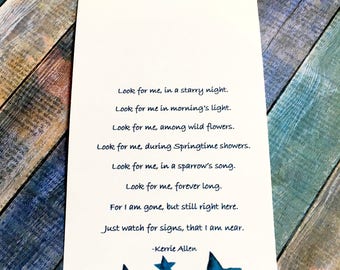 Look for me, in a starry night.
Look for me in morning's light.
Look for me, among wild flowers.
Look for me, during Springtime showers.
Look for me, in a sparrow's song.
Look for me, forever long.
For I am gone, but still right here.
Just watch for signs, that I am near.
-Kerrie Allen